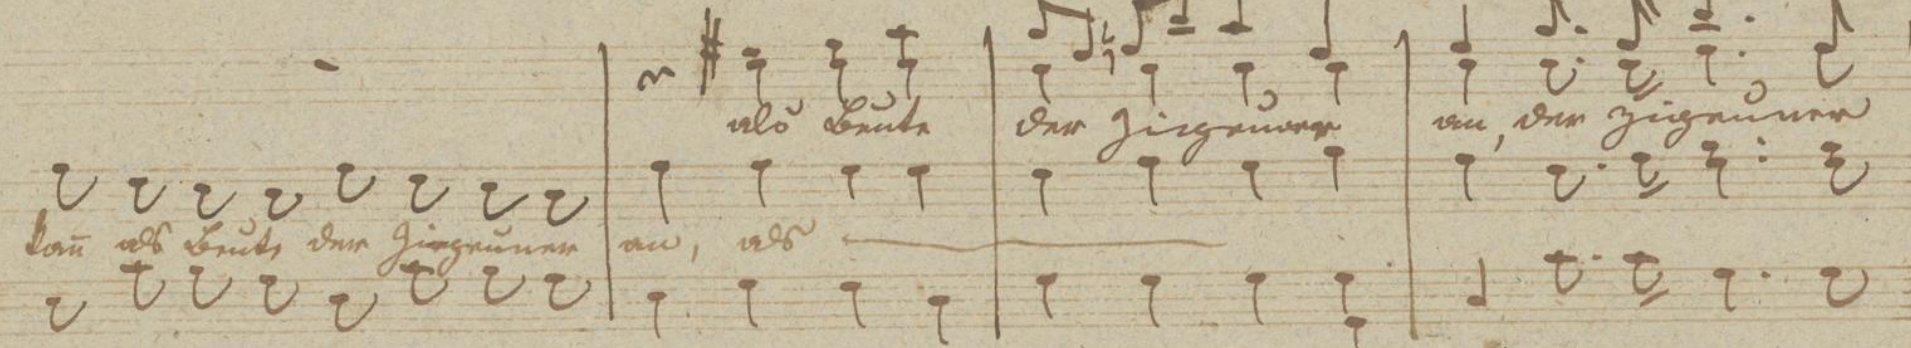 als Beute der Zigeuner an, der Zigeuner
kañ als Beute der Ziegeuner an, als